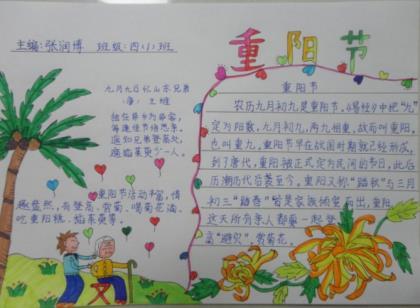 主编:张润博 班级:四(1)班
重阳节
九月九日忆山东兄弟
(唐)王维
独在异乡为异客,
每逢佳节倍思亲。
遥知兄弟登高处,
遍插茱萸少一人。
重阳节活动丰富,情
趣盎然,有登高、赏菊、喝菊花酒、
吃重阳糕、插茱萸等。
重阳节
农历九月初九是重阳节。《易经》中把“九”
定为阳数,九月初九,两九相重,故而叫重阳
也叫重九,重阳节早在战国时期就已经形成,
到了唐代,重阳被正式定为民间的节日,此后
历朝历代沿袭至今。重阳又称“踏秋”与三月
初三“踏春”皆是家族倾室而出,重阳
这天所有亲人都要一起登
高“避灾”,赏菊花。